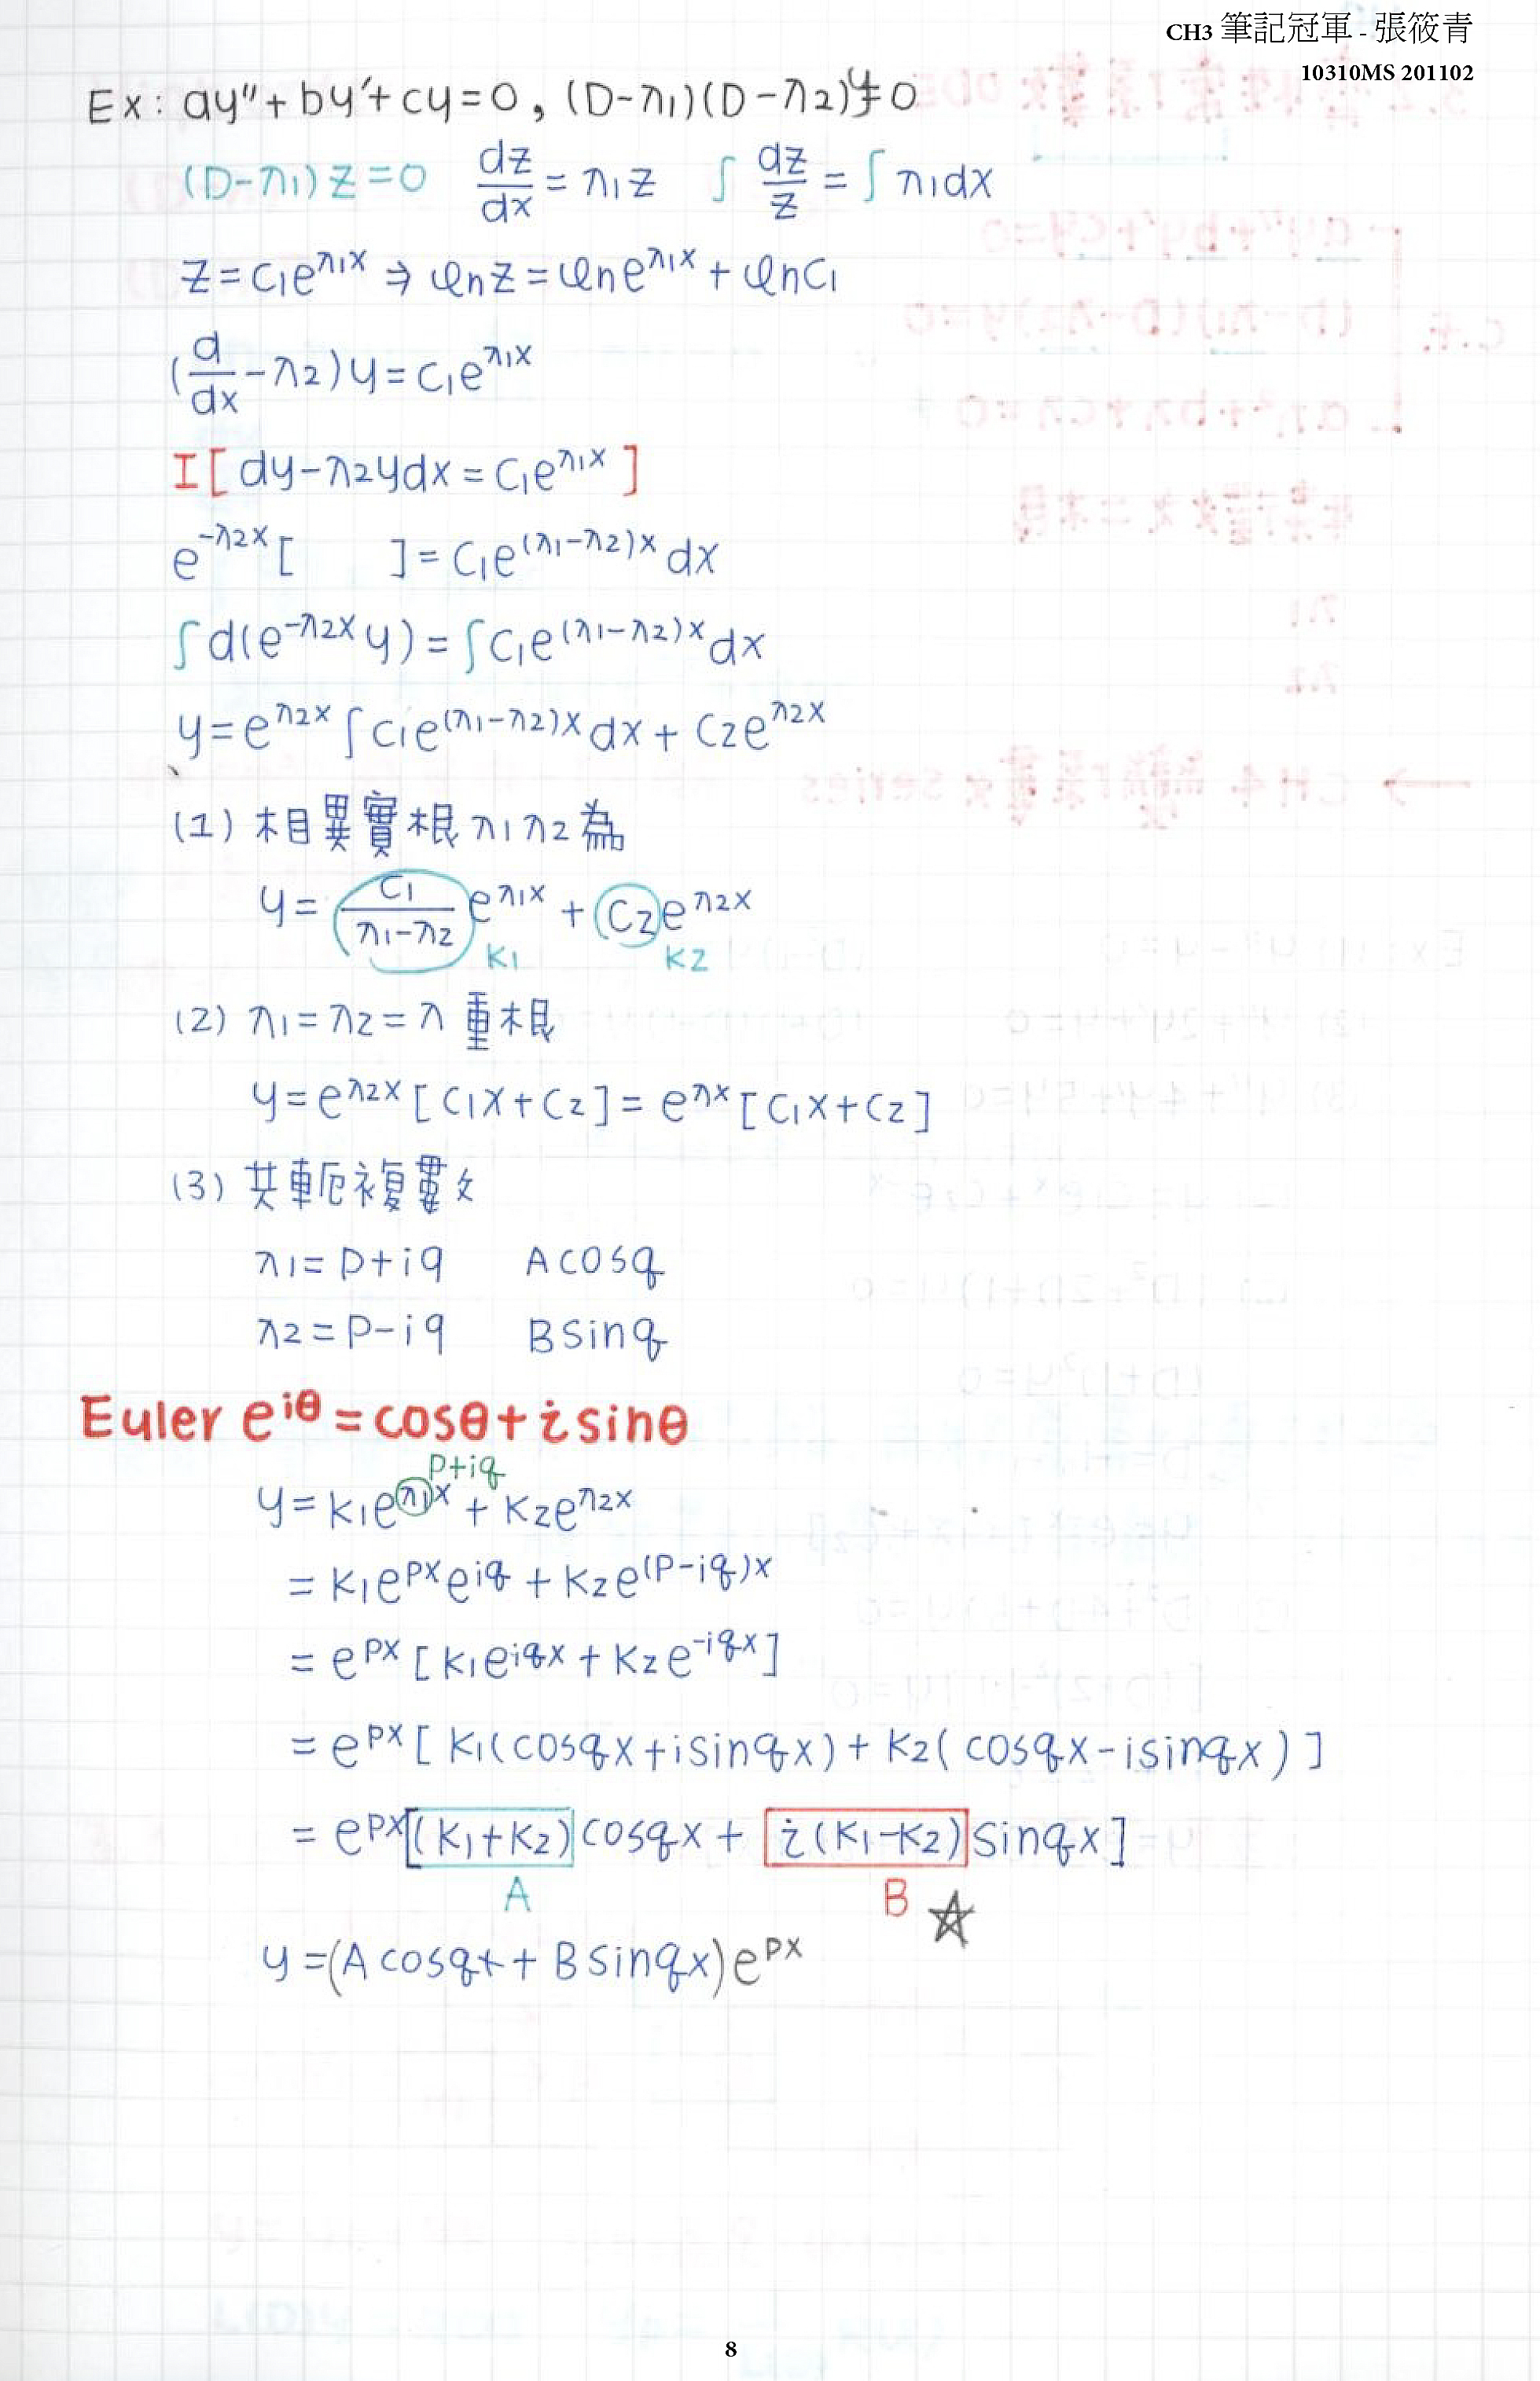 CH3 筆記冠軍 - 張筱青
10310MS 201102
Ex: ay"+by'+cy=0, (D-λ1)(D-λ2)y=0
(D-λ1)z=0 dz/dx = λ1z ∫dz/z = ∫λ1dx
z=c1e^λ1x ⇒ lnz=lne^λ1x+lnc1
(d/dx-λ2)y=c1e^λ1x
I[dy-λ2ydx=c1e^λ1x]
e^-λ2x[ ]=c1e^(λ1-λ2)x dx
∫d(e^-λ2x y)=∫c1e^(λ1-λ2)x dx
y=e^λ2x∫c1e^(λ1-λ2)x dx+c2e^λ2x
(1) 相異實根λ1λ2為
y= c1/(λ1-λ2) e^λ1x + c2e^λ2x
K1 K2
(2) λ1=λ2=λ 重根
y=e^λ2x[c1x+c2]=e^λx[c1x+c2]
(3) 共軛複數
λ1=P+iq Acosq
λ2=P-iq Bsinq
Euler e^iθ=cosθ+isinθ
P+iq
y=K1e^λ1x+K2e^λ2x
=K1e^Px e^iq+K2e^(P-iq)x
=e^Px[K1e^iqx+K2e^-iqx]
=e^Px[K1(cosqx+isinqx)+K2(cosqx-isinqx)]
=e^Px[(K1+K2)cosqx+i(K1-K2)sinqx]
A B ☆
y=(Acosqx+Bsinqx)e^Px
8